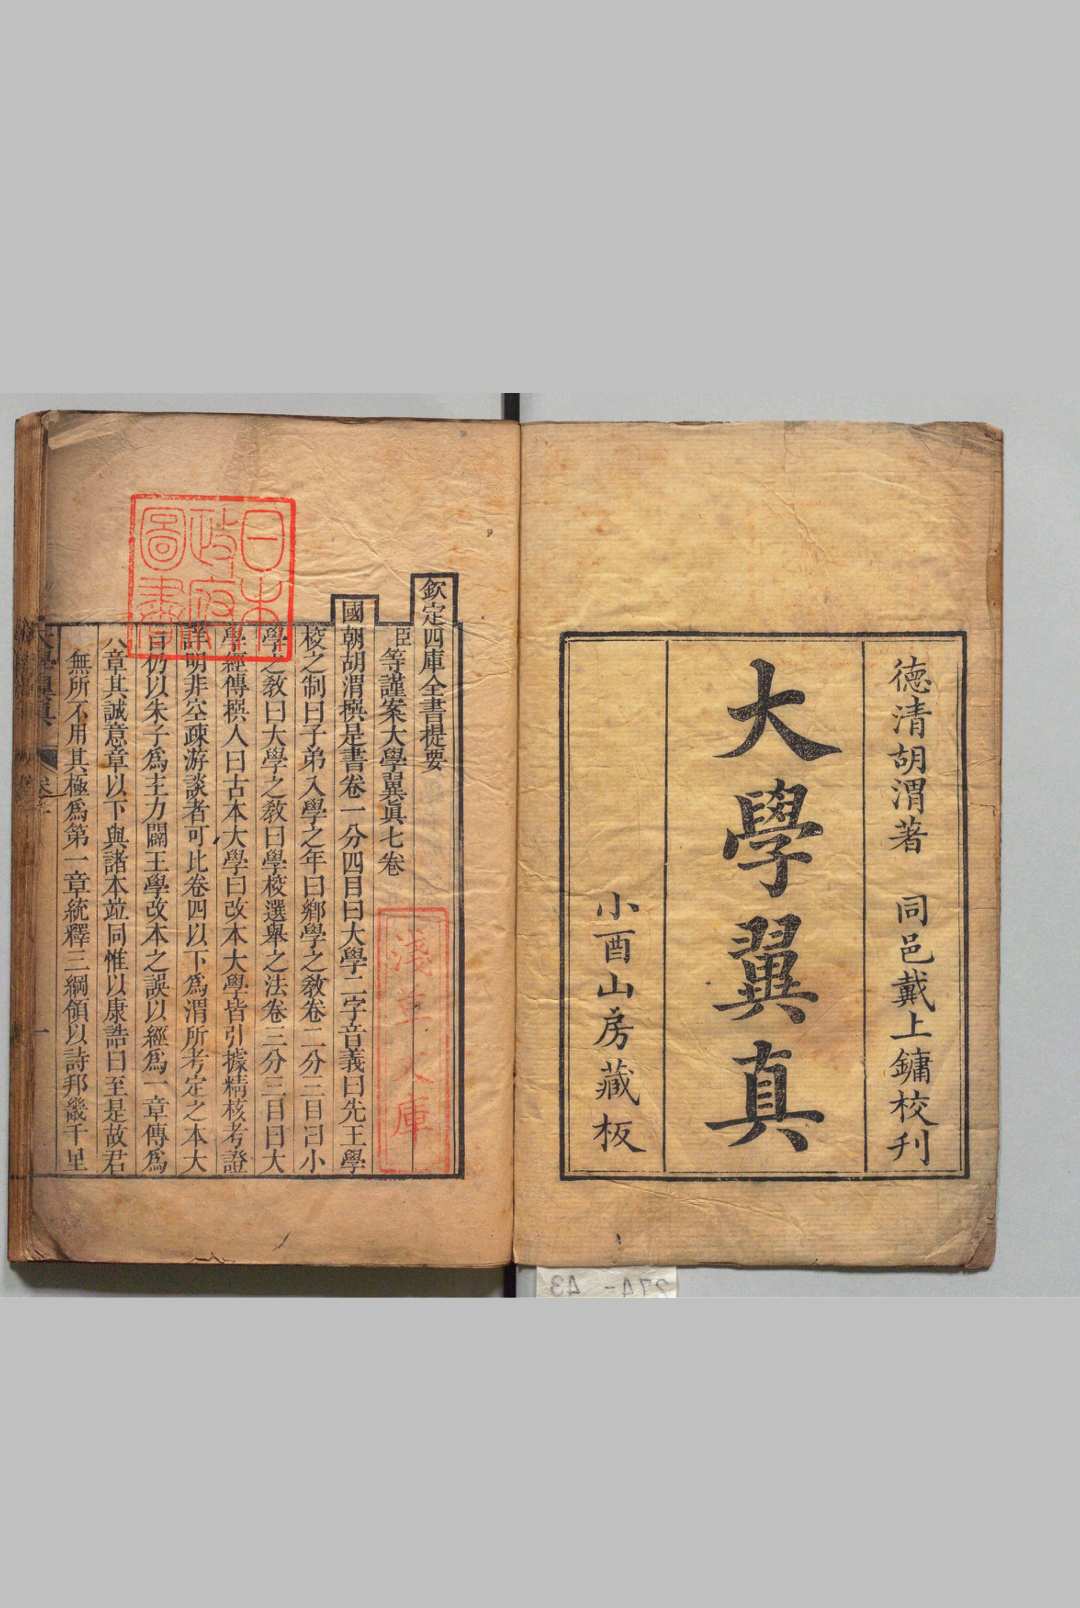 德清胡渭著　同邑戴上鏞校刋
大學翼真
小酉山房藏板
欽定四庫全書提要
臣等謹案大學翼眞七卷
國朝胡渭撰是書卷一分四目曰大學二字音義曰先王學
校之制曰子弟入學之年曰鄉學之敎卷二分三目曰小
學之敎曰大學之敎曰學校選舉之法卷三分三目曰大
學經傳撰人曰古本大學曰改本大學皆引據精核考證
詳明非空疎游談者可比卷四以下爲渭所考定之本大
旨仍以朱子爲主力闢王學改本之誤以經爲一章傳爲
八章其誠意章以下與諸本竝同惟以康誥曰至是故君
無所不用其極爲第一章統釋三綱領以詩邦畿千里
日本
政府
圖書
淺草文庫
274-43